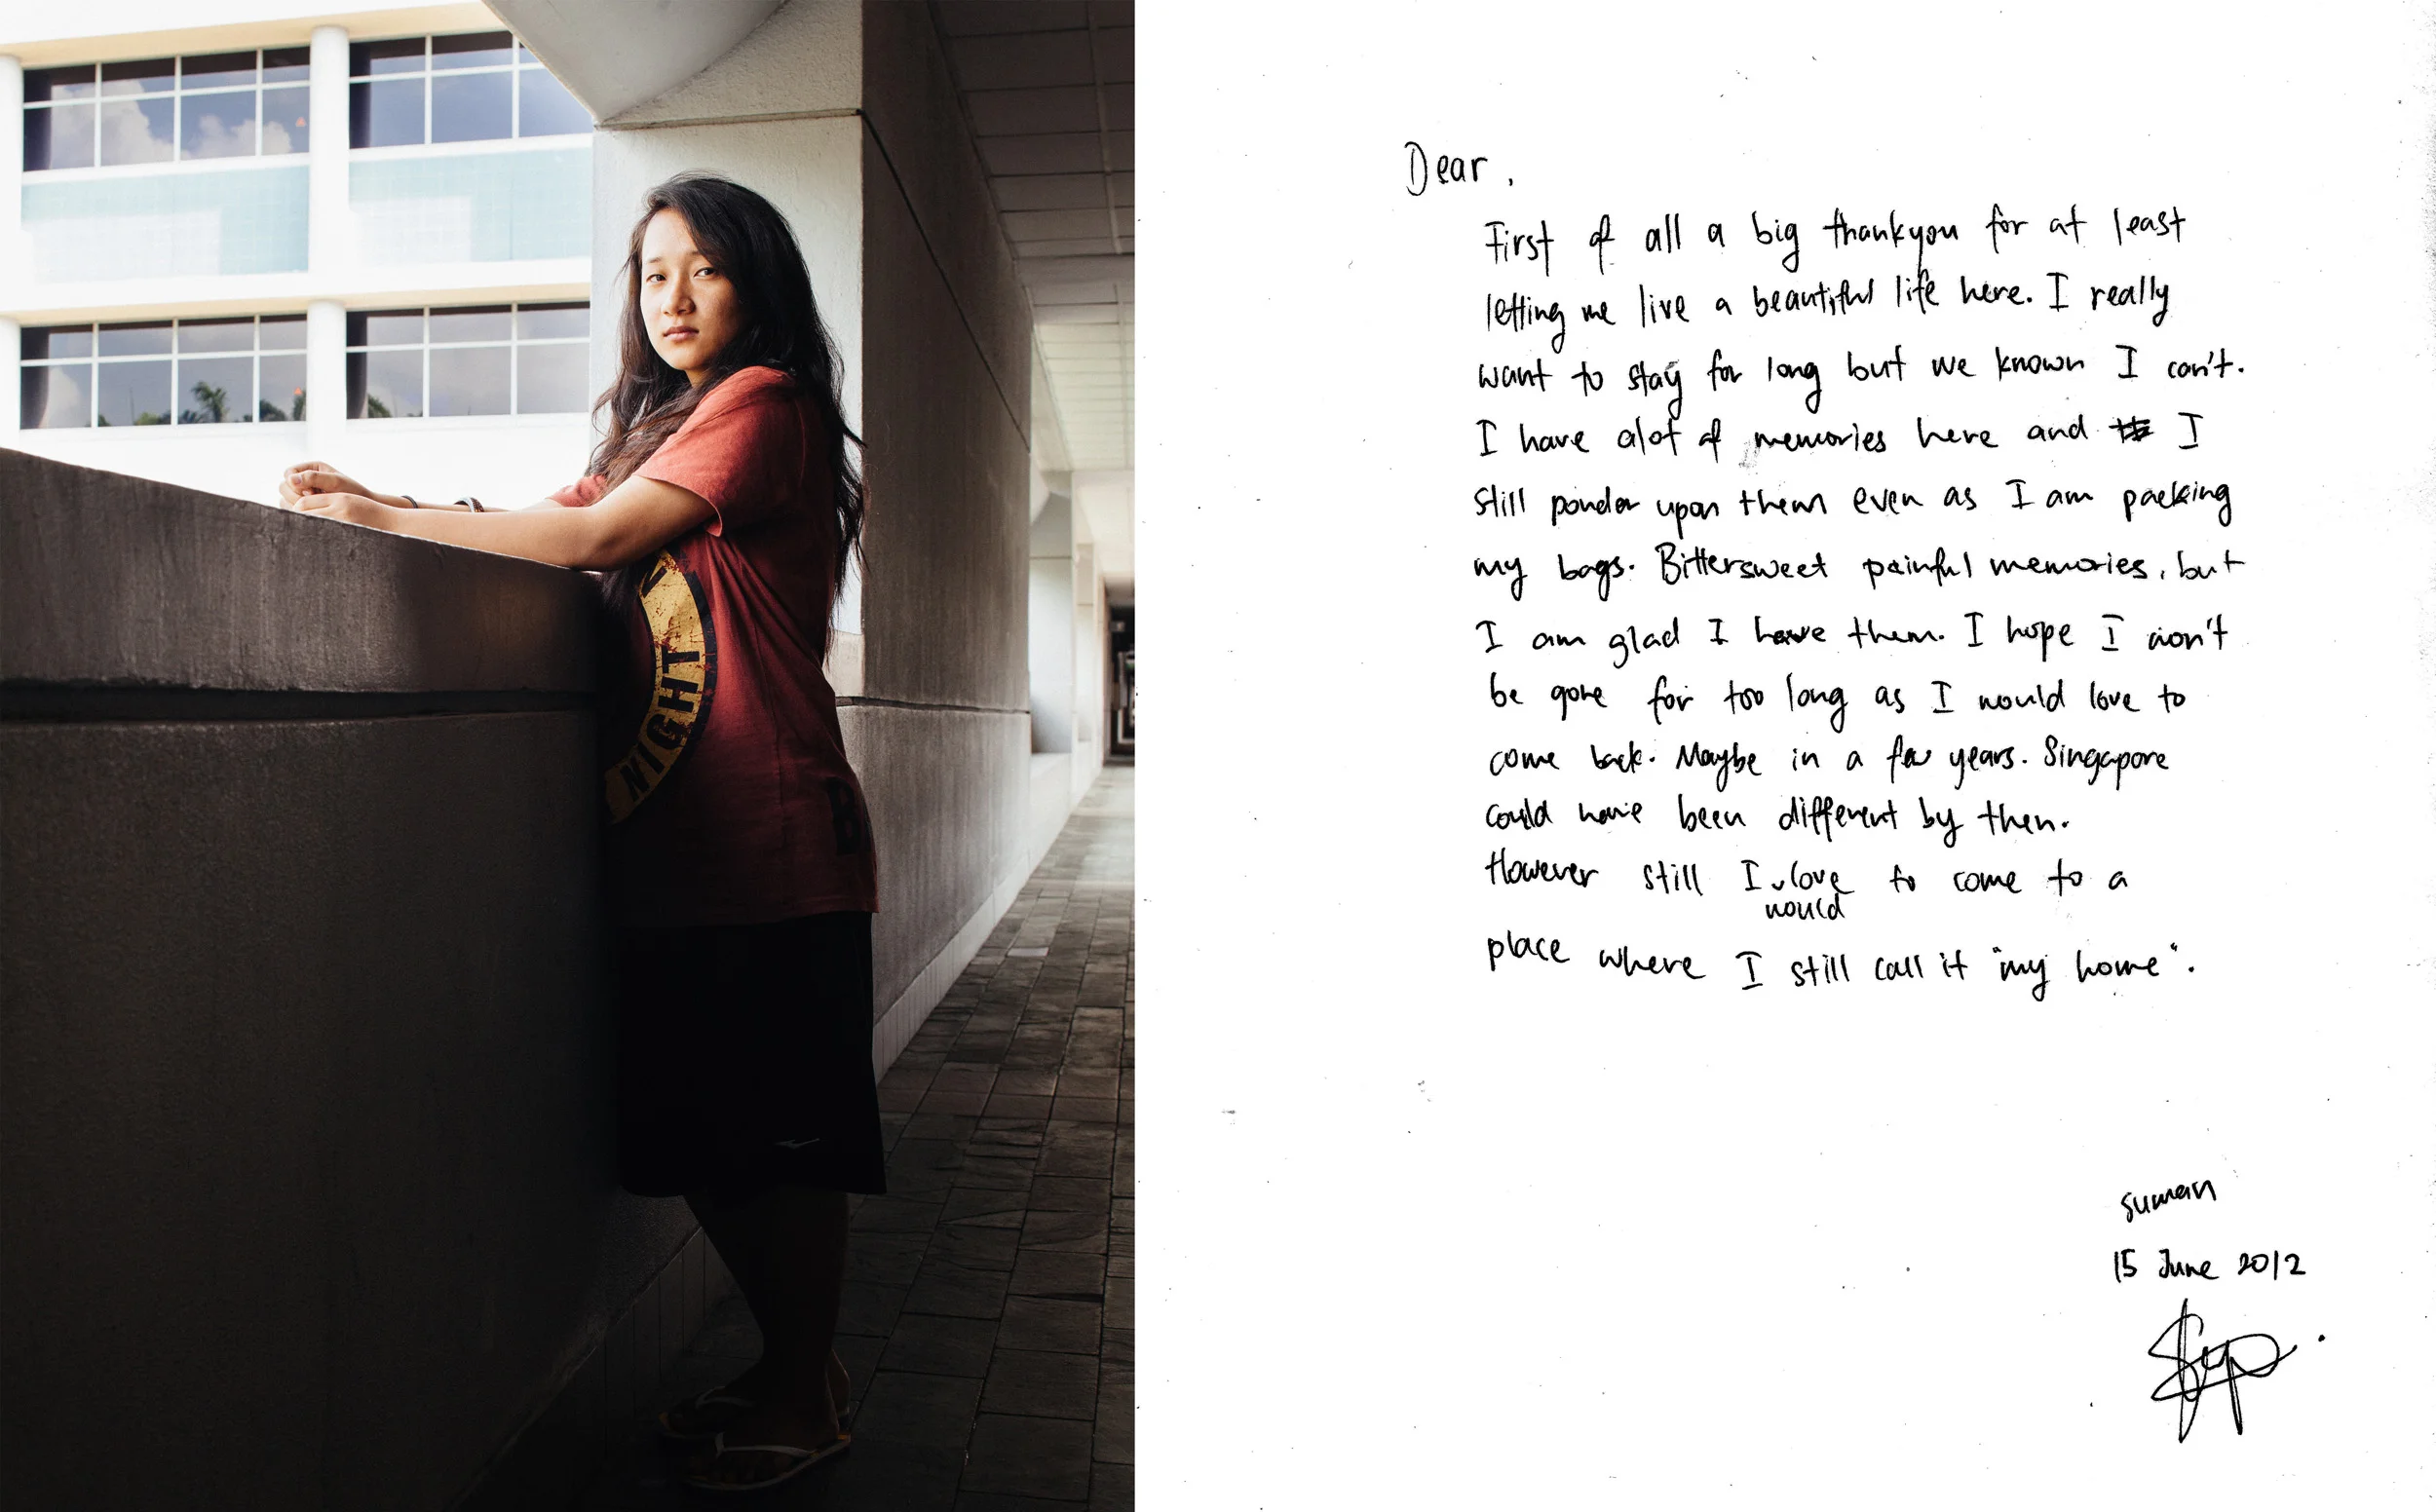 NIGHT
B
Dear,
First of all a big thankyou for at least
letting me live a beautiful life here. I really
want to stay for long but we known I can't.
I have alot of memories here and I
still ponder upon them even as I am packing
my bags. Bittersweet painful memories, but
I am glad I have them. I hope I won't
be gone for too long as I would love to
come back. Maybe in a few years. Singapore
could have been different by then.
However still I love to come to a
would
place where I still call it "my home".
suman
15 June 2012